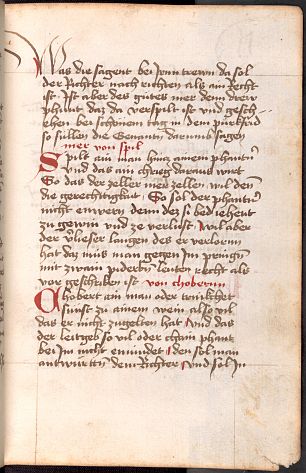 Was die sagent bei irnn trewn da sol
der Richter nach richten als ain recht
ist Ist aber des gutes mer denn drew
phunt daz da verspilt ist und gesch-
ehen bei schönem tag in dem purkfrid
so süllen die Genantn darumb sagen
mer von spil
Spilt ain man hincz ainem phantnn
Und das am chreg daraus wirt
So das der zeller mer zellen wil denn
die gerechtigkait So sol der phantnn
nicht enpern denn des si bed ieheut
zu gewin und ze verlust wil aber
der laugen des er verlornn
hat daz mus man gegen im prengn
mit zwain piderbn leuten Recht als
vor geschriben ist von choberunn
Chobert ain man oder trinkchet
sunst zu ainem wein also vil
das er nicht zugelten hat Und das
der leitgeb so vil oder chain phant
bei im nicht emindet den sol man
antwurttn dem Richter Und sol im